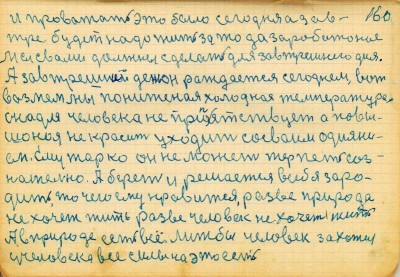 и провожать это было сегодня а зав- 160
тре будет надо жить за то да заработоное
Мы свами должны сделать для завтрешнего дня.
А завтрешней де он рождается сегоднем, вот
возмем мы пониженая холодная температура
она для человека не прпятствует а повы-
шоная не красит уходит со своим одеяни-
ем. Ему жарко он не может терпеть соз-
нательно. А берет и решается в себя заро-
дить, то чего ему нравится, разве природа
не хочет жить разве человек не хочет жить
А в природе есть всё. Лиж бы человек захотел
у человека все силы на это есть